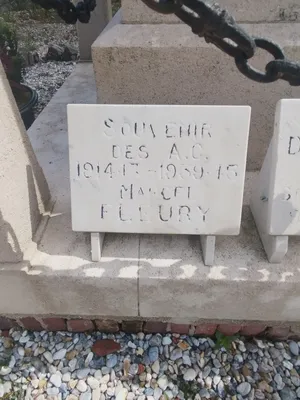 SOUVENIR
DES A.C.
1914-17-1939-45
MARCEL
FLEURY